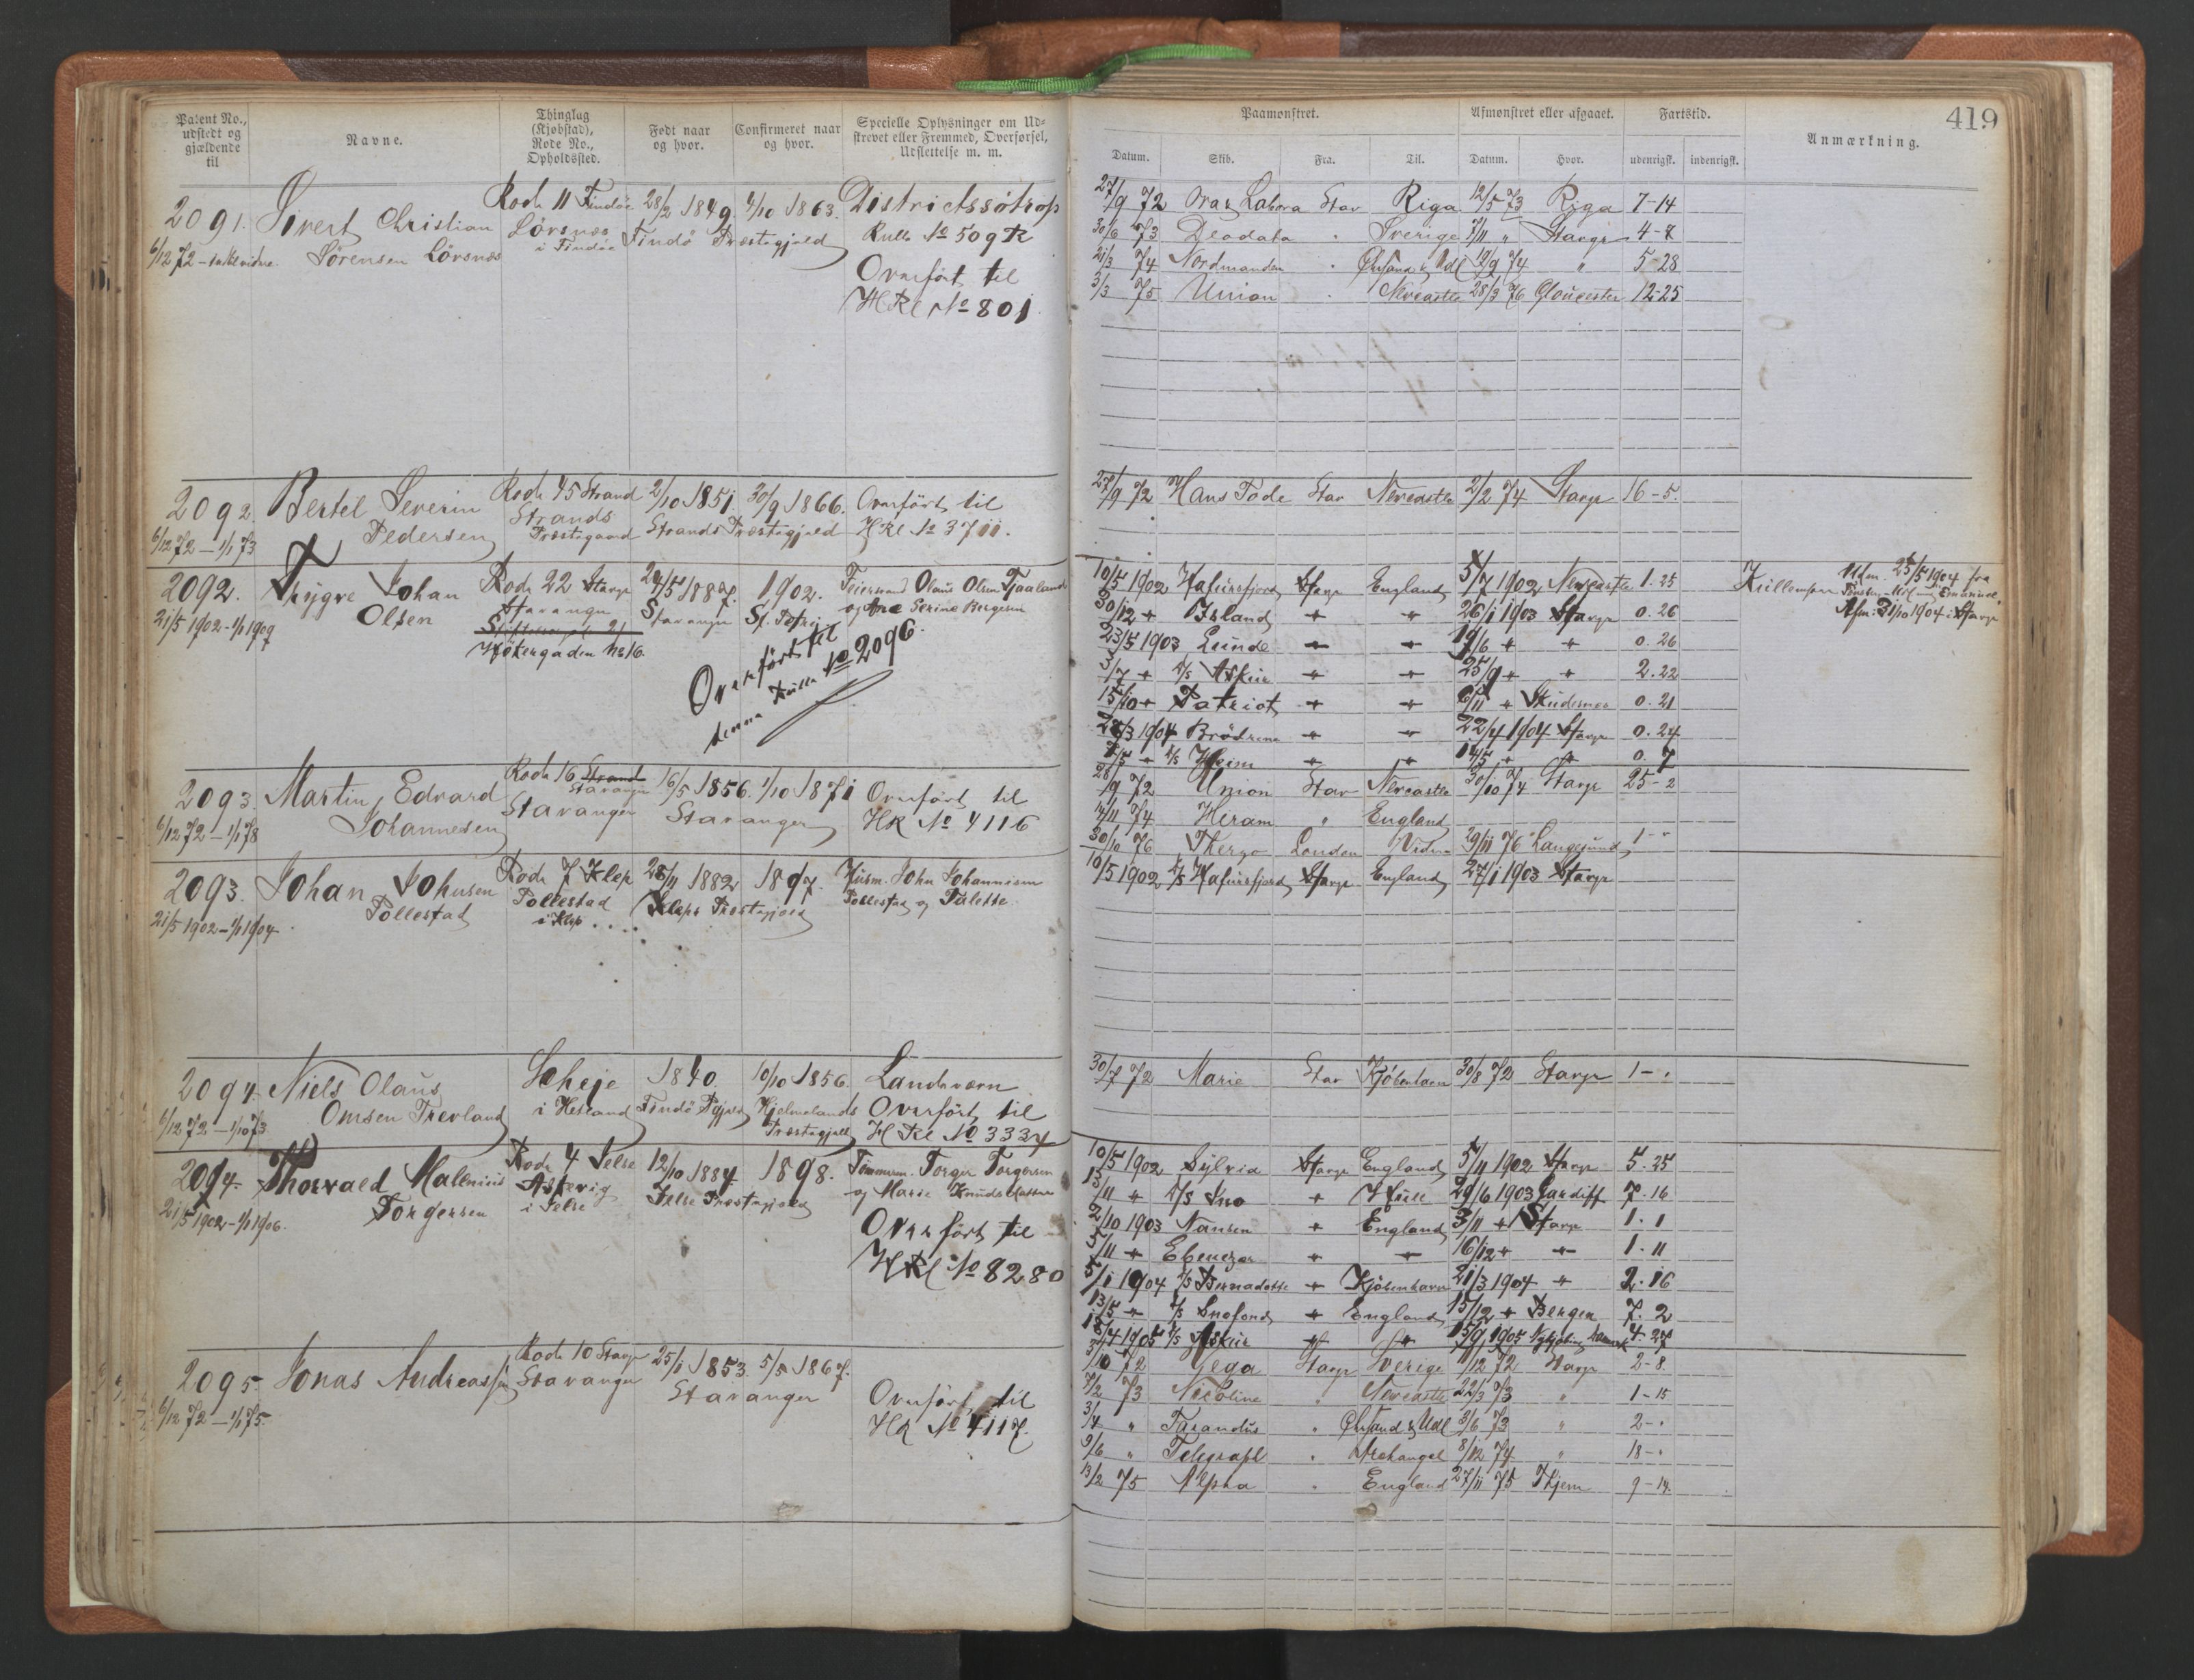 Patent No., udstedt og gjældende til
Navne.
Thinglag (Kjøbstad), Rode No., Opholdssted.
Født naar og hvor.
Confirmeret naar og hvor.
Specielle Oplysninger om Udskrevet eller Fremmed, Overførsel, Udslettelse m. m.
2091. Sivert Christian Rode 11 Findöe 28/2 1849. 4/10 1863. Districtssötrop
6/12 72 - Sörensen Lörsnæs Lörsnæs i Findöe Findö Præstegjeld Rulle No 509 R
Overført til
HRl No 801
2092. Bertel Severin Rode 45 Strand 2/10 1851. 30/9 1866. Overført til
6/12 72 - 1/1 73 Pedersen Strands Præstegaard Strands Præstegjeld HRl No 3711.
2092. Trygve Johan Rode 22 Stavgr 24/5 1887. 1902. Olaus Olsen Tjaaland
21/5 1902-1/1 1907 Olsen Stavanger Stavanger St. Petri og Ane Serine Bergesen
No 16.
Overført til
denne Rulle No 2096.
2093. Martin Edvard Rode 16 Strand Stavanger 16/5 1856. 1/10 1871 Overført til
6/12 72 - 1/1 78 Johannesen Stavanger Stavanger HR No 4116
2093. Johan Johnsen Rode 7 Klep 28/11 1882 1897. Husm. John Johannesen
21/5 1902-1/1 1904 Pollestad Pollestad i Klep Kleps Præstegjeld Pollestad og
2094. Niels Olaus 1840. 10/10 1856. Landeværn
6/12 72 - 1/10 73 Omsen Trevland i Hesland Findö Pgjeld Hjelmelands Præstegjeld Overført til
H Rl No 3334
2094. Thorvald Malenius Rode 4 Jelse 12/10 1884. 1898. Tömmerm. Torger Torgersen
21/5 1902-1/1 1906. Torgersen i Jelse Jelse Præstegjeld og Marie Knudsdatter
Overført til
HRl No 8280
2095. Jonas Andreassen Rode 10 Stavgr 25/1 1853. 5/5 1867.
6/12 72 - 1/1 75. Stavanger Stavanger Overført til
HR No 4117.
419
Paamønstret.
Afmønstret eller afgaaet.
Fartstid.
Anmærkning.
Datum. Skib. Fra. Til. Datum. Hvor. udenrigsk. indenrigsk.
27/9 72 Ora & Labora Stav Riga 12/5 73 Riga 7-14
30/6 73 Deodata " Sverige 7/11 " Stavgr 4-7
21/3 74 Nordmanden " Østland & Udl 19/9 74 " 5-28
3/3 75 Union " Newcastle 28/3 76 Gloucester 12-25
27/9 72 Hans Tode Stav Newcastle 2/2 74 Stavgr 16-5.
10/5 1902 Hafursfjord Stavgr England 5/7 1902 Newcastle 1.25
30/12 " Island " " 26/1 1903 Stavgr 0.26
23/5 1903 Lunde " " 19/6 " " 0.26
3/7 " D/S Askur " " 25/9 " " 2.22
15/10 " Patriot " " 6/11 " Skudesnes 0.21
28/3 1904 Brödrene " " 22/4 1904 Stavgr 0.24
7/5 " D/S Heim " " 14/5 " " 0.7
Afm. 31/10 1904 i Stavgr
28/9 72 Union Stav Newcastle 30/10 74 Stavgr 25-2
14/11 74 Heram " England
30/10 76 London 29/11 76 Langesund 1-"
10/5 1902 D/S Hafursfjord Stavgr England 27/1 1903 Stavgr
30/7 72 Marie Stav Kjøbenhavn 30/8 72 Stavgr 1-.
10/5 1902 Sylvia Stavgr England 5/11 1902 Stavgr 5.25
13/11 " D/S Sno " Hull 29/6 1903 Cardiff 7.16
2/10 1903 Nansen " England 3/11 " Stavgr 1.1
5/11 " Ebenezer " " 16/12 " " 1.11
5/1 1904 D/S Bernadotte " Kjøbenhavn 21/3 1904 " 2.16
13/5 " D/S Snefond " England 15/12 " Bergen 7.2
18/4 1905 D/S Askur " " 15/9 1905 Nykjöbing Danmark 4.27
3/10 72 Vega Stavgr Sverige 11/12 72 Stavgr 2-8.
7/2 73 Nicoline " Newcastle 22/3 73 " 1-15
3/4 " Tarandus " Østland & Udl 3/6 73 " 2-.
9/6 " Telegraph " Archangel 8/12 74 " 18-.
13/2 75 Alpha " England 27/11 75 Thjem 9-14.